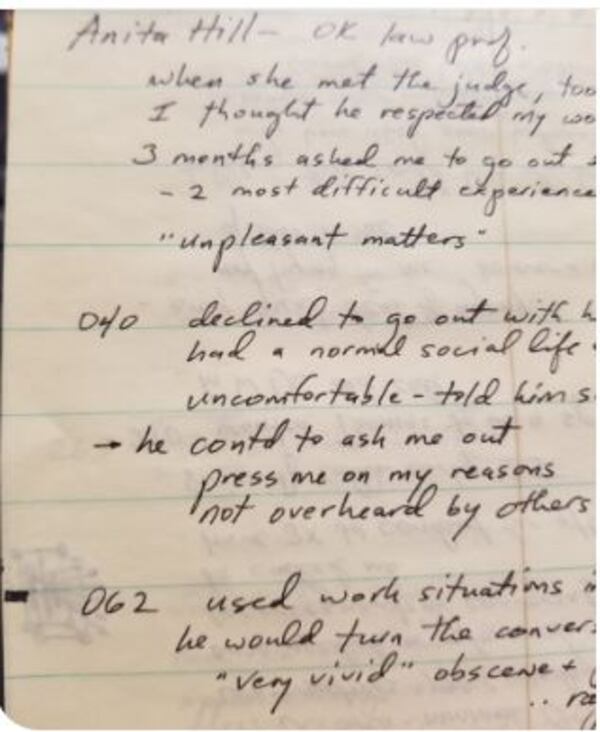 Anita Hill - OK law prof.
when she met the judge, too
I thought he respected my wo
3 months asked me to go out
- 2 most difficult experience
"unpleasant matters"
040 declined to go out with h
had a normal social life
uncomfortable - told him s
→ he contd to ask me out
press me on my reasons
not overheard by others
062 used work situations
he would turn the conver
"very vivid" obscene +